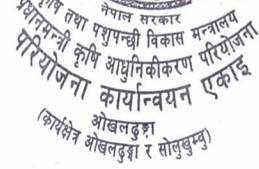 नेपाल सरकार
कृषि तथा पशुपन्छी विकास मन्त्रालय
प्रधानमन्त्री कृषि आधुनिकीकरण परियोजना
परियोजना कार्यान्वयन एकाइ
ओखलढुङ्गा
(कार्यक्षेत्र ओखलढुङ्गा र सोलुखुम्वु)